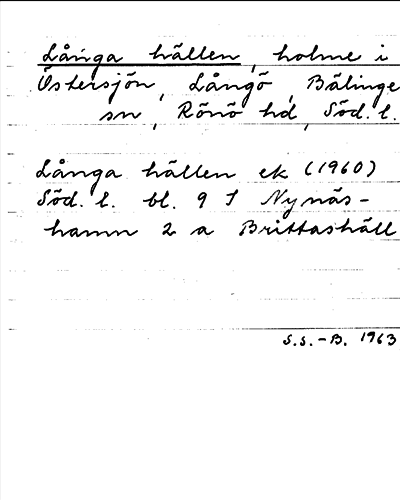 Långa hällen, holme i
Östersjön, Långö, Bälinge
sn, Rönö hd, Söd. l.
Långa hällen ek (1960)
Söd. l. bl. 9 I Nynäs-
hamn 2 a Brittashäll
S.S.-B. 1963